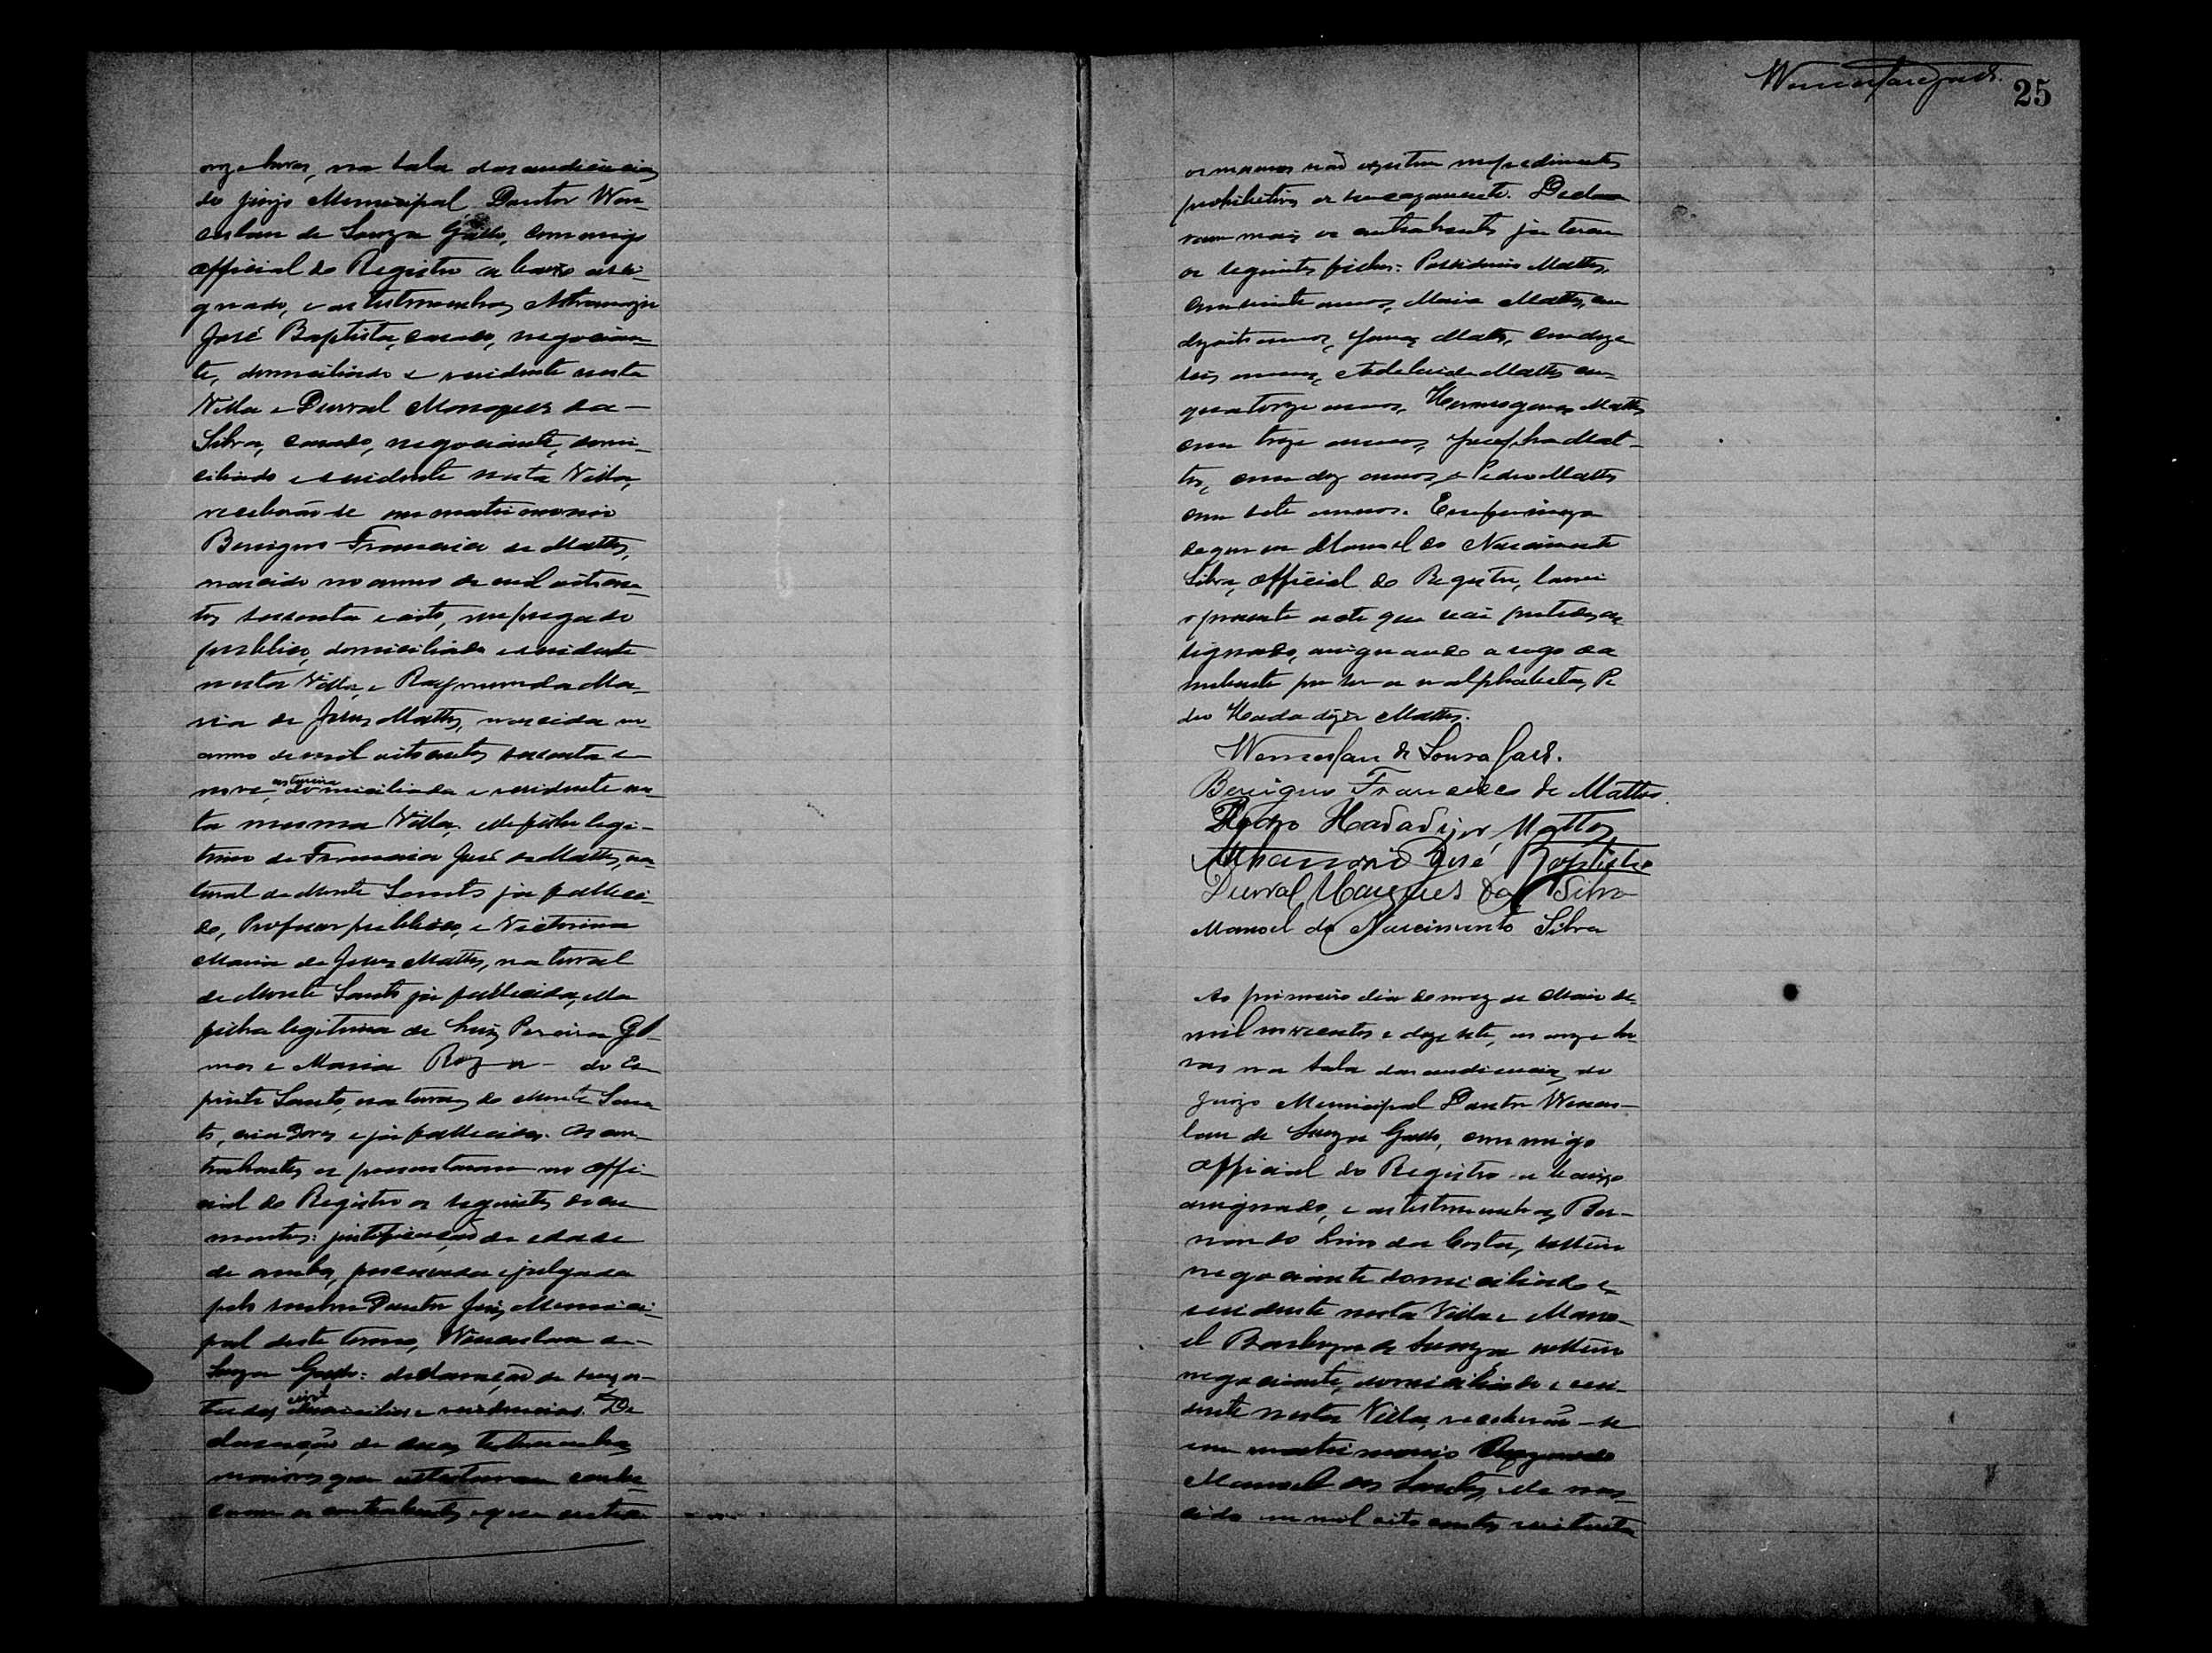 onze horas, na sala das audiencias
do juizo Municipal Doutor Wen-
ceslau de Souza Galla, commigo
official do Registro a baixo assi-
gnado, e as testemunhas
José Baptista, casado, negocian-
te, domiciliado e residente nesta
Villa e Durval Marques da
Silva, casado, negociante, domi-
ciliado e residente nesta Villa,
receberão-se em matrimonio
Benigno Francisco de Mattos,
nascido no anno de mil oitocen-
tos sessenta e oito, empregado
publico, domiciliado e residente
nesta Villa, e Raymunda Ma-
ria de Jesus Mattos, nascida no
anno de mil oitocentos sessenta e
nove, costureira domiciliada e residente nes-
ta mesma Villa, elle filho legi-
timo de Francisco José de Mattos, na-
tural de Monte Santo já falleci-
do, Professor publico, e Victorina
Maria de Jesus Mattos, natural
de Monte Santo já fallecida, ella
filha legitima de Luiz Pereira
e Maria Roza do Es-
pirito Santo, naturaes de Monte San-
to, criadores e já fallecidos. Os con-
trahentes apresentaram ao offi-
cial do Registro os seguintes docu-
mentos: justificação da edade
de ambos, processada e julgada
pelo mesmo Doutor Juiz Munici-
pal deste termo, Wenceslau de
Souza : declaração de seus es-
tados civil domicilios e residencias. De-
claração de duas testemunhas
maiores que attestaram conhe-
cerem os contrahentes e que entre
25
os mesmos não existem impedimentos
prohibitivos de casamento. Decla-
raram mais os contrahentes já terem
os seguintes filhos: Possidonio Mattos,
com vinte annos, Maria Mattos, com
dezoito annos, Mattos, com deze-
seis annos, Adelaide Mattos com
quatorze annos, Hermogenes Mattos
com treze annos, Josepha Mat-
tos, com dez annos, e Pedro Mattos
com sete annos. Em firmeza
do que eu Manoel do Nascimento
Silva, official do Registro, lavrei
o presente acto que vai por todos as-
signado, assignando a rogo da
nubente por ser analphabeta, Pe-
dro Hadadiger Mattos.
Wenceslau de Souza
Benigno Francisco de Mattos.
Pedro Hadadijer Mattos
José Baptista
Durval Marques da Silva
Manoel do Nascimento Silva
Ao primeiro dia do mez de Maio de
mil novecentos e dezesete, as onze ho-
ras na sala das audiencias do
Juizo Municipal Doutor Wences-
lau de Souza , commigo
official do Registro a baixo
assignado, e as testemunhas Ber-
nardo Lino da Costa, solteiro
negociante domiciliado e
residente nesta Villa e Mano-
el Barboza de Souza solteiro
negociante, domiciliado e resi-
dente nesta Villa, receberão-se
em matrimonio
Manoel dos Santos, elle nas-
cido em mil oito centos